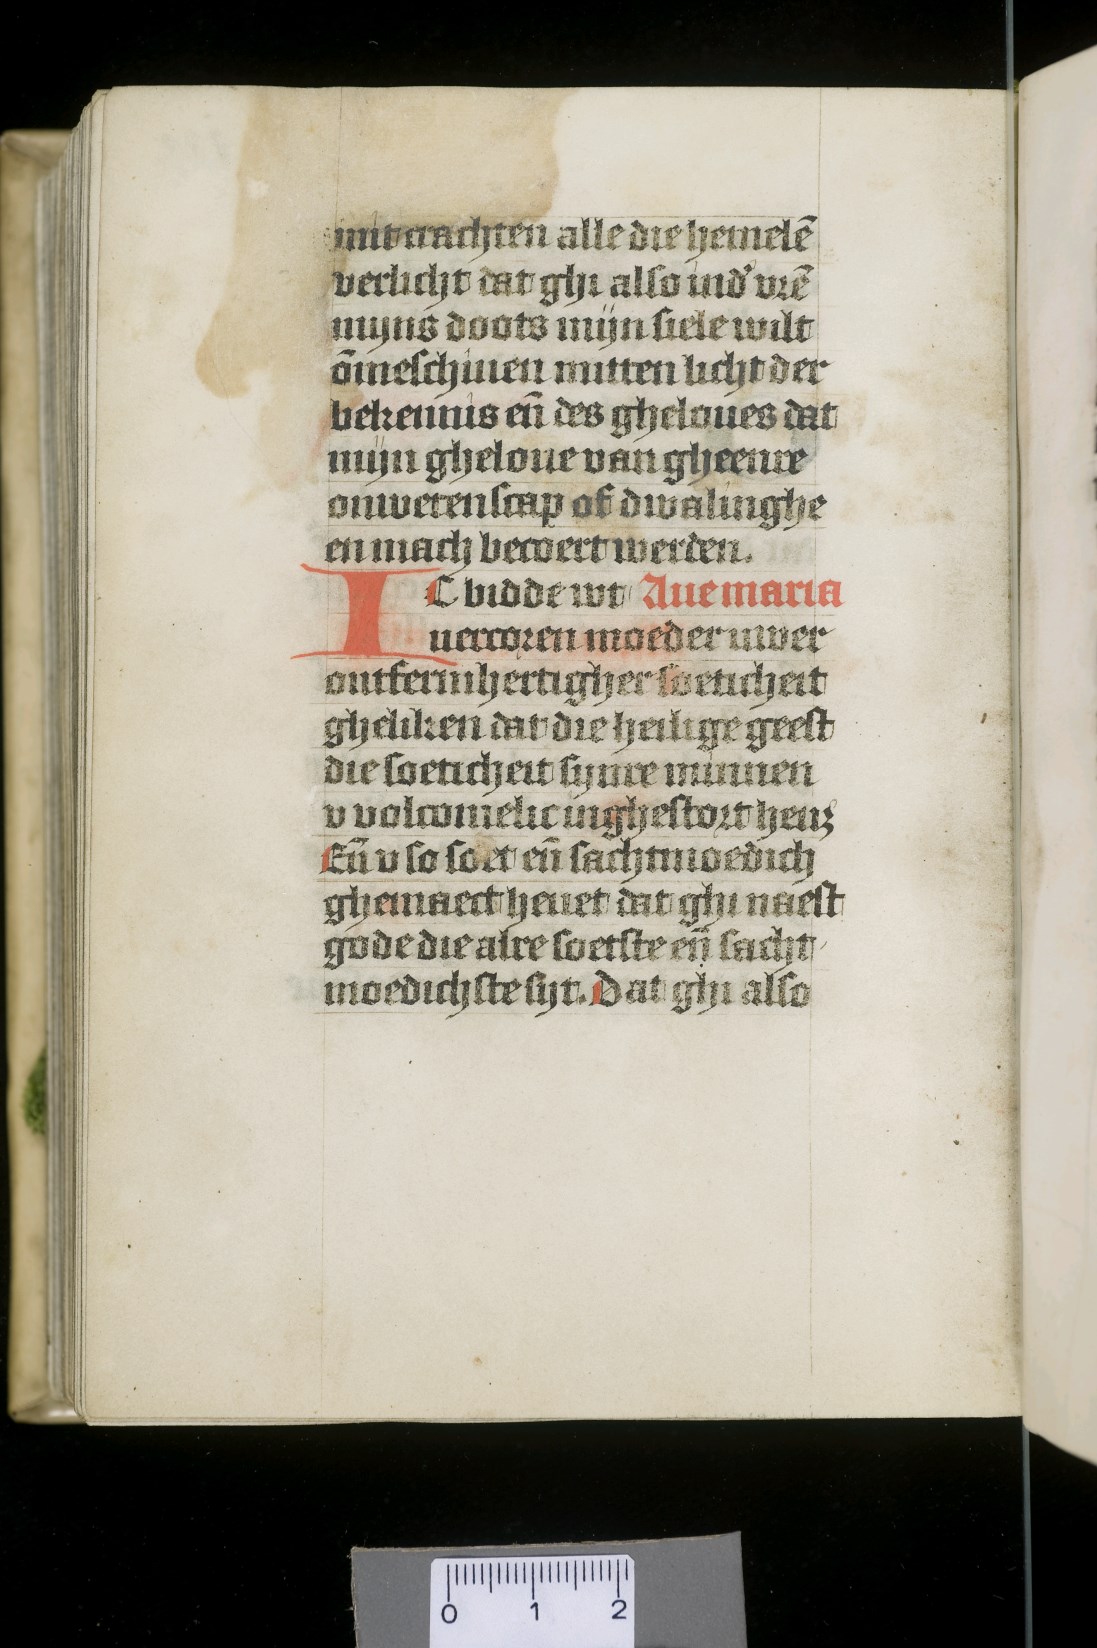 mit crachten alle die hemelē
verlicht dat ghi also ind' vrē
mijns doots mijn siele wilt
ōmeschinen mitten licht der
bekennis en̄ des gheloues dat
mijn gheloue van gheenre
onwetenscap of dwalinghe
en mach becoert werden.
IC bidde wt Aue maria
uercoren moeder uwer
ontfermhertigher soeticheit
gheliken dat die heilige geest
die soeticheit synre minnen
v volcomelic inghestort heuꝫ
En̄ v so soet en̄ sachtmoedich
ghemaect heuet dat ghi naest
gode die alre soetste en̄ sacht
moedichste syt. Dat ghi also
0 1 2